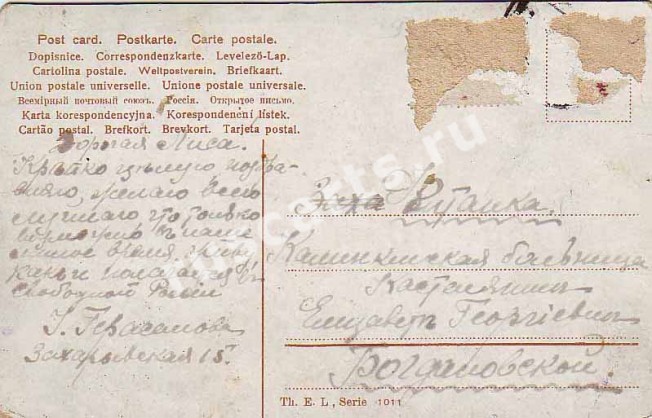 Post card. Postkarte. Carte postale.
Dopisnice. Correspondenzkarte. Levelező-Lap.
Cartolina postale. Weltpostverein. Briefkaart.
Union postale universelle. Unione postale universale.
Всемірный почтовый союзъ. Россія. Открытое письмо.
Karta korespondencyjna. Korespondenční lístek.
Cartão postal. Brefkort. Brevkort. Tarjeta postal.
Дорогая Лиса.
Крѣпко цѣлую поздра-
вляю, желаю всего
лучшаго что только
возможно въ наше
время
свободной Россіи
Захарьевская 15.
Калинкинская больница
Кастелянши
Елизаветѣ Георгіевнѣ
Богдановской.
Th. E. L., Serie 1011